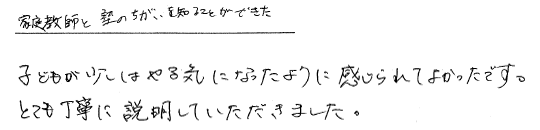 家庭教師と塾のちがいを知ることができた
子どもが少しはやる気になったように感じられてよかったです。
とても丁寧に説明していただきました。